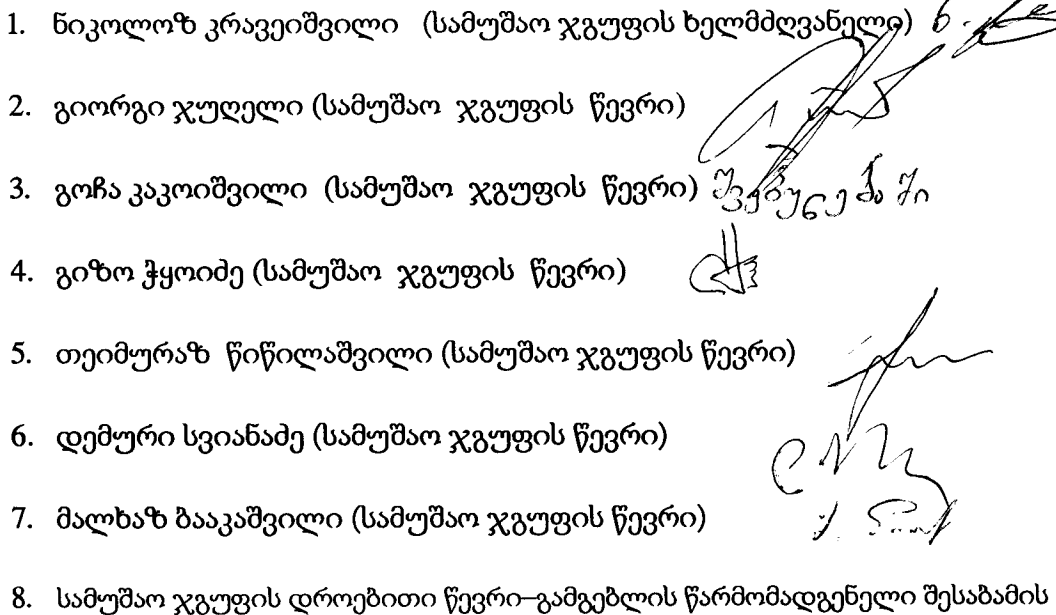 1. ნიკოლოზ კრავეიშვილი (სამუშაო ჯგუფის ხელმძღვანელი)
2. გიორგი ჯუღელი (სამუშაო ჯგუფის წევრი)
3. გოჩა კაკოიშვილი (სამუშაო ჯგუფის წევრი) შვებულებაში
4. გიზო ჭყოიძე (სამუშაო ჯგუფის წევრი)
5. თეიმურაზ წიწილაშვილი (სამუშაო ჯგუფის წევრი)
6. დემური სვიანაძე (სამუშაო ჯგუფის წევრი)
7. მალხაზ ბააკაშვილი (სამუშაო ჯგუფის წევრი)
8. სამუშაო ჯგუფის დროებითი წევრი–გამგებლის წარმომადგენელი შესაბამის